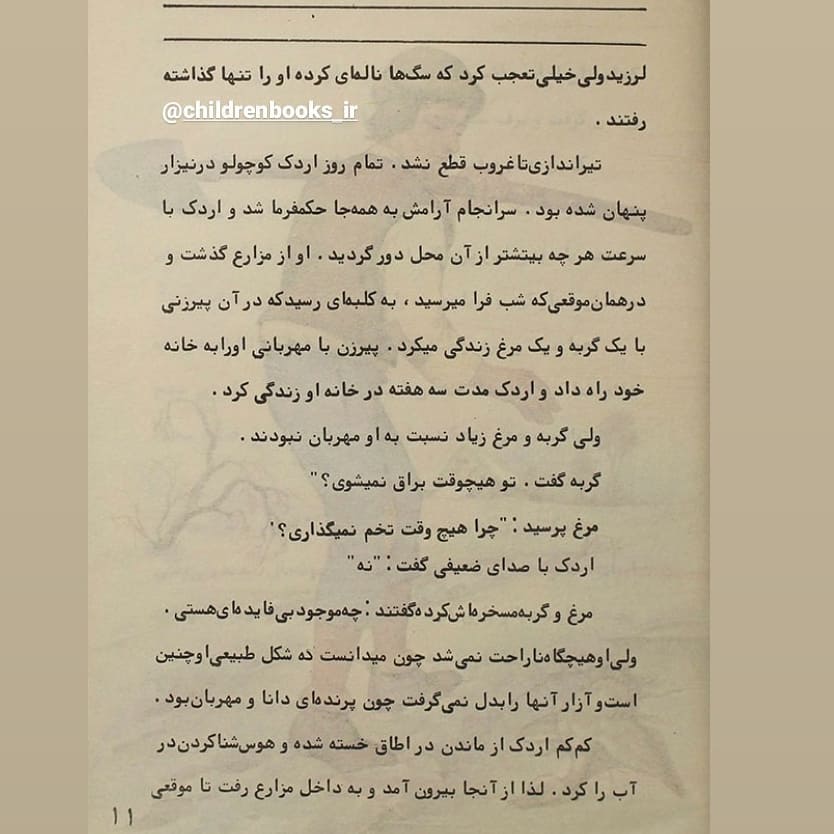 لرزید ولی خیلی تعجب کرد که سگ‌ها ناله‌ای کرده او را تنها گذاشته
@childrenbooks_ir
رفتند .
تیراندازی تا غروب قطع نشد . تمام روز اردک کوچولو در نیزار
پنهان شده بود . سرانجام آرامش به همه‌جا حکمفرما شد و اردک با
سرعت هر چه بیتشتر از آن محل دور گردید . او از مزارع گذشت و
در همان موقعی که شب فرا میرسید ، به کلبه‌ای رسید که در آن پیرزنی
با یک گربه و یک مرغ زندگی میکرد . پیرزن با مهربانی او را به خانه
خود راه داد و اردک مدت سه هفته در خانه او زندگی کرد .
ولی گربه و مرغ زیاد نسبت به او مهربان نبودند .
گربه گفت . تو هیچوقت براق نمیشوی؟"
مرغ پرسید : "چرا هیچ وقت تخم نمیگذاری؟'
اردک با صدای ضعیفی گفت : "نه"
مرغ و گربه مسخره‌اش کرده گفتند : چه موجود بی فایده‌ای هستی .
ولی او هیچگاه ناراحت نمی‌شد چون میدانست ده شکل طبیعی او چنین
است و آزار آنها را بدل نمی‌گرفت چون پرنده‌ای دانا و مهربان بود .
کم‌کم اردک از ماندن در اطاق خسته شده و هوس شنا کردن در
آب را کرد . لذا از آنجا بیرون آمد و به داخل مزارع رفت تا موقعی
۱۱